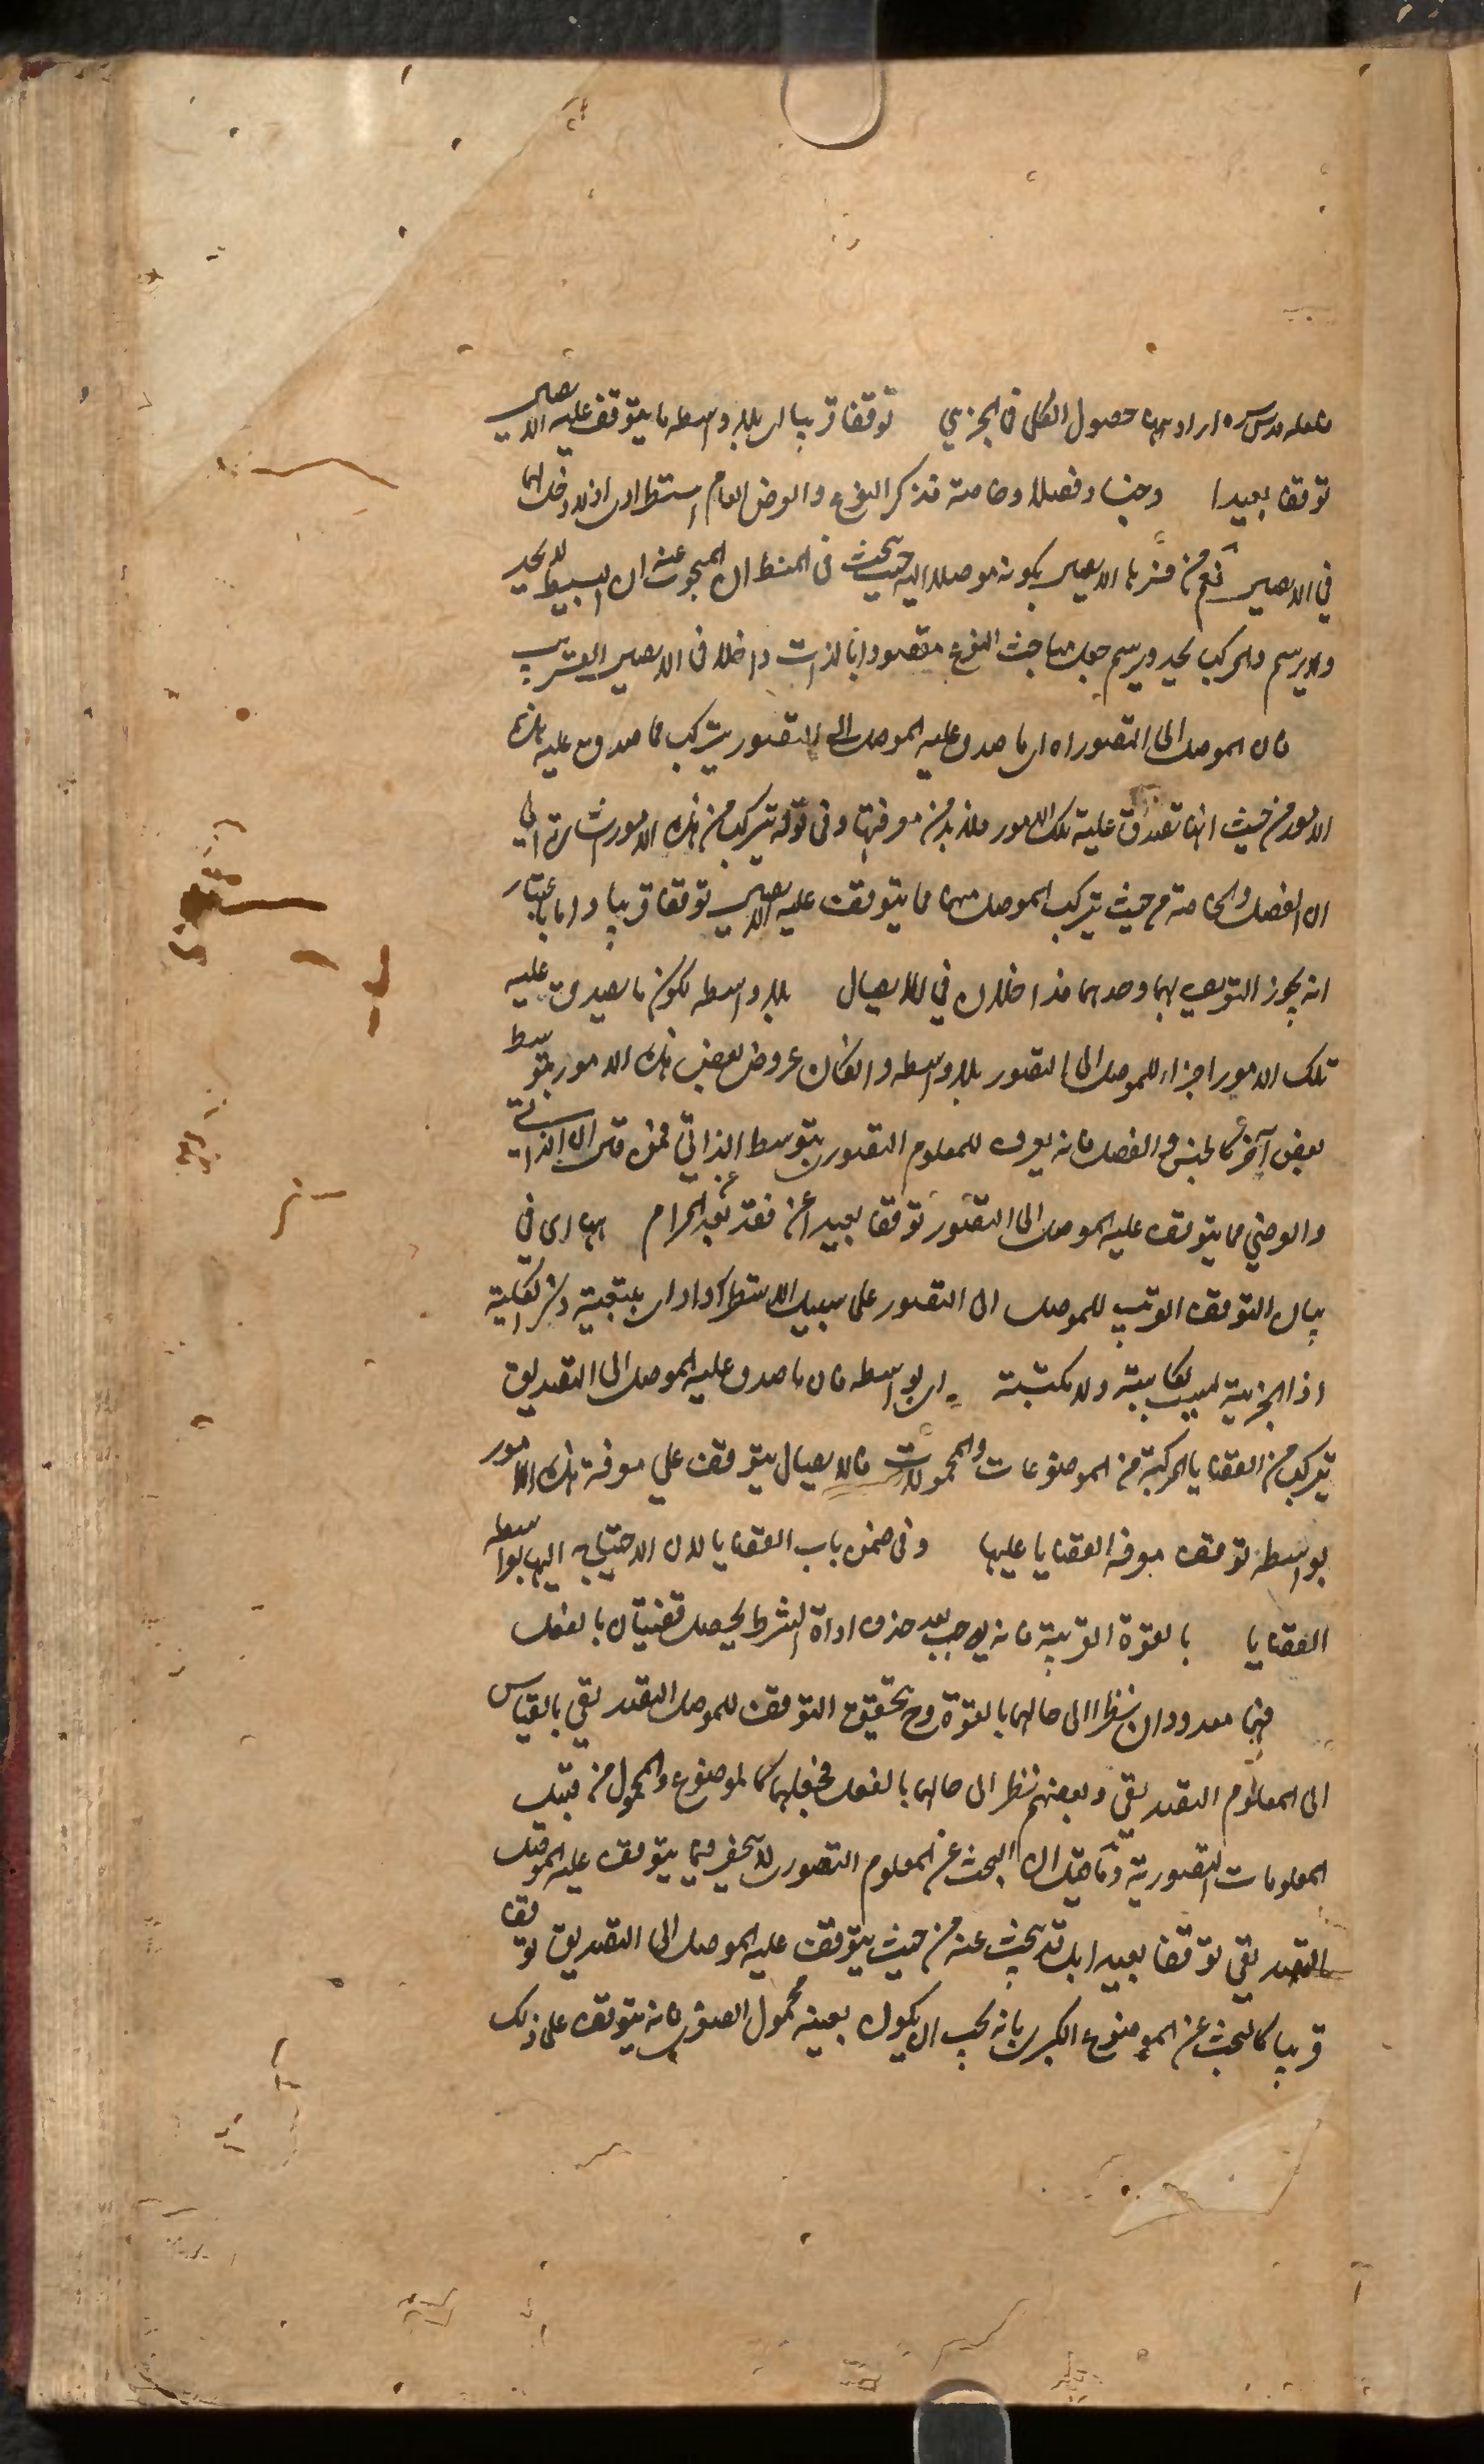 قدس سره اراد بهما حصول الكلى فى الجزئي توقفا قريبا اى بلا واسطه ما يتوقف عليه الايصال
توقفا بعيدا وجنسا وفصلا وخاصة فذكر النوع والعرض العام استطرادى اذ لا دخل لهما
في الايصال نعم من فسر الايصال بكونه موصلا اليه حيث يبحث فى المنطق ان المبحوث عنه ان البسيط لا يحد
ولا يرسم والمركب يحد ويرسم جعل مباحث النوع مقصودا بالذات داخلا فى الايصال القريب
فان الموصل الى التصور اه اى ما صدق عليه الموصل الى التصور يتركب مما صدق عليه هذه
الامور من حيث انها تصدق عليه تلك الامور فلا بد من معرفتها وفى قوله يتركب من هذه الامور اشارة الى
ان الفصل والخاصة من حيث يتركب الموصل منهما مما يتوقف عليه الايصال توقفا قريبا واما باعتبار
انه يجوز التعريف بهما وحدهما فداخلان في الايصال بلا واسطه لكون ما يصدق عليه
تلك الامور اجزاء للموصل الى التصور بلا واسطه وان كان عروض بعض هذه الامور بتوسط
بعض آخر كالجنس والفصل فانه يعرف للمعلوم التصورى بتوسط الذاتي فمن قال ان الذاتي
والعرضي مما يتوقف عليه الموصل الى التصور توقفا بعيدا فقد بعد عن المرام بهما اى فى
بيان التوقف القريب للموصل الى التصور على سبيل الاستطراد اى بتبعية ذكر الكلية
اذ الجزئية ليست بكاسبة ولا مكتسبة اى بواسطه فان ما صدق عليه الموصل الى التصديق
يتركب من القضايا المركبة من الموضوعات والمحمولات فالايصال يتوقف علي معرفة هذه الامور
بواسطة توقف معرفة القضايا عليها وفى ضمن باب القضايا لان الاحتياج اليها بواسطه
القضايا بالقوة القريبة فانه بعد حذف اداة الشرط يحصل قضيتان بالفعل
فهما معدودان نظرا الى حالهما بالقوة وح تحقيق التوقف للموصل التصديقي بالقياس
الى المعلوم التصديقي وبعضهم نظر الى حالهما بالفعل فجعلهما كالموضوع والمحمول من قبيل
المعلومات التصورية وتأمل ان البحث عن المعلوم التصورى لا ينحصر فيما يتوقف عليه الموصل
التصديقي توقفا بعيدا بل قد يبحث عنه من حيث يتوقف عليه الموصل الى التصديق توقفا
قريبا كالبحث عن الموضوع الكبرى بانه يجب ان يكون بعينه محمول الصغرى فانه يتوقف على ذلك